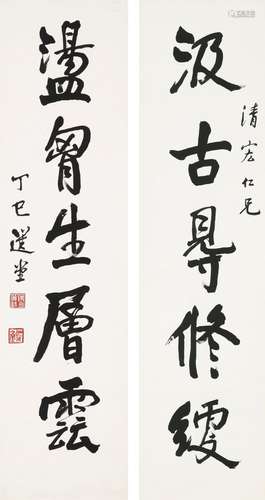 汲古㝵脩綆
清宏仁兄
盪胷生層雲
丁巳選堂